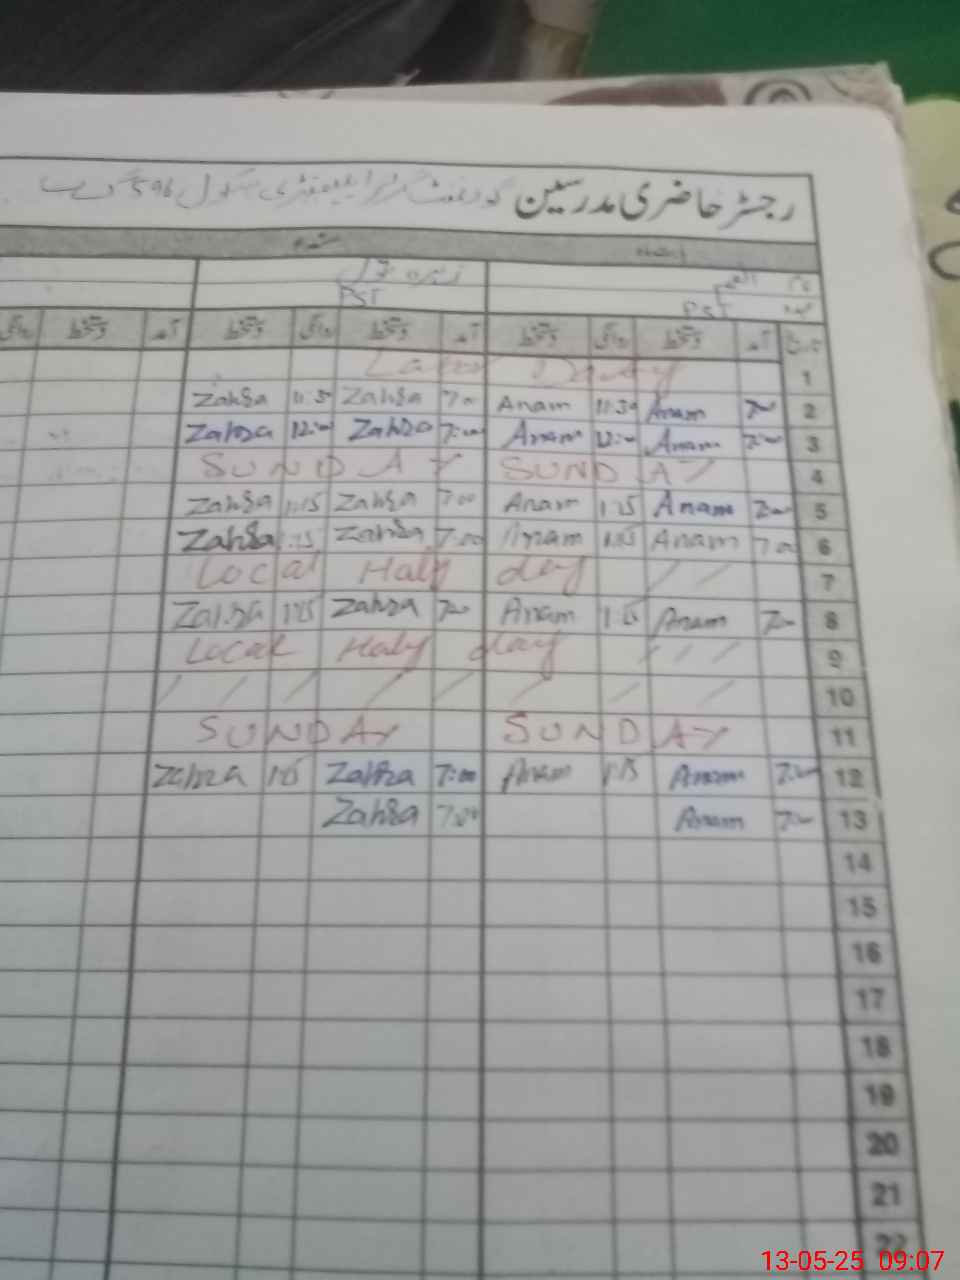 رجسٹر حاضری مدرسین گورنمنٹ گرلز ایلیمنٹری سکول 596 گ ب
PST PST
تاریخ آمد دستخط روانگی دستخط آمد دستخط روانگی دستخط آمد دستخط روانگی
Labor Day 1
Zahra 11:30 Zahra 7:00 Anam 11:30 Anam 7:00 2
Zahra 12:00 Zahra 7:00 Anam 12:00 Anam 7:00 3
SUNDAY SUNDAY 4
Zahra 1:15 Zahra 7:00 Anam 1:15 Anam 7:00 5
Zahra 1:15 Zahra 7:00 Anam 1:15 Anam 7:00 6
Local Haly day / / 7
Zahra 1:15 Zahra 7:00 Anam 1:15 Anam 7:00 8
Local Haly day / / / 9
/ / / / / / / / 10
SUNDAY SUNDAY 11
Zahra 1:15 Zahra 7:00 Anam 1:15 Anam 7:00 12
Zahra 7:00 Anam 7:00 13
14
15
16
17
18
19
20
21
22
13-05-25 09:07